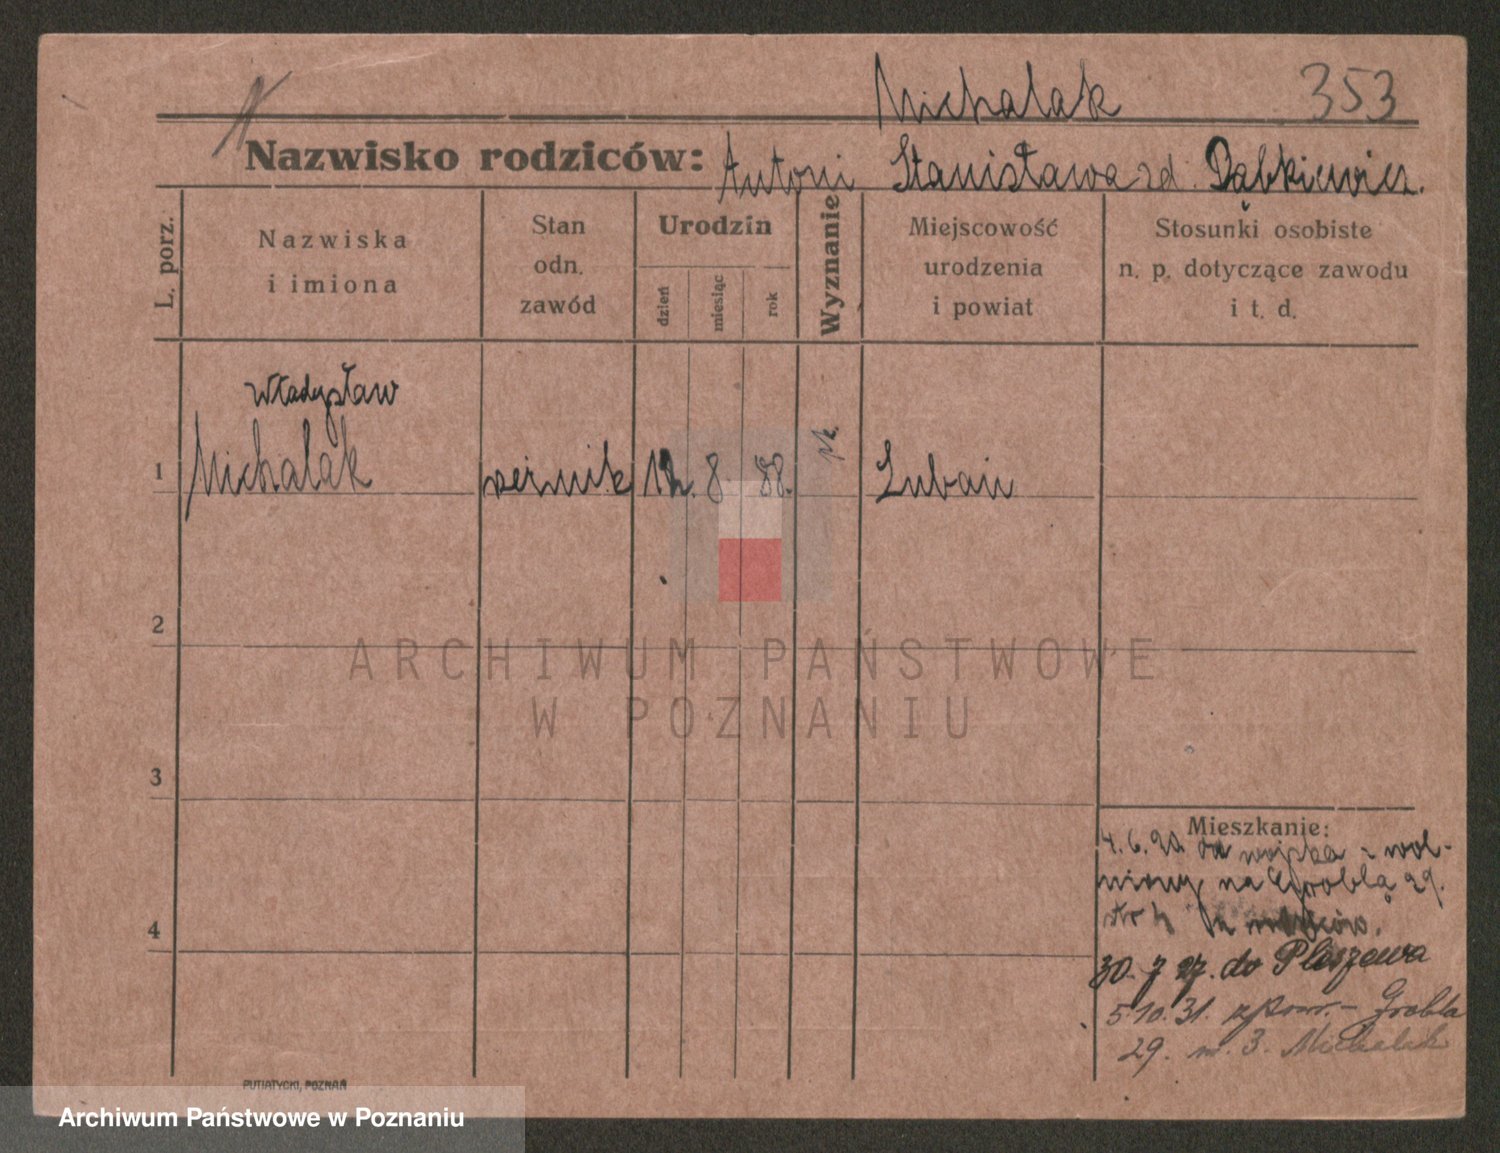 Michalak 353
Nazwisko rodziców: Antoni Stanisława zd. Dąbkiewicz.
L. porz.
Nazwiska
i imiona
Stan
odn.
zawód
Urodzin
dzień
miesiąc
rok
Wyznanie
Miejscowość
urodzenia
i powiat
Stosunki osobiste
n. p. dotyczące zawodu
i t. d.
Władysław
1 Michalak rzeźnik 12. 8. 88. rk. Lubań
2
3
4
ARCHIWUM PAŃSTWOWE
W POZNANIU
Mieszkanie:
4.6.20. od wojska zwol-
niony na Groblą 29.
30. 7 27. do Pleszewa
5.10.31. Grobla
29. m. 3. Michalak
PUTIATYCKI, POZNAŃ
Archiwum Państwowe w Poznaniu